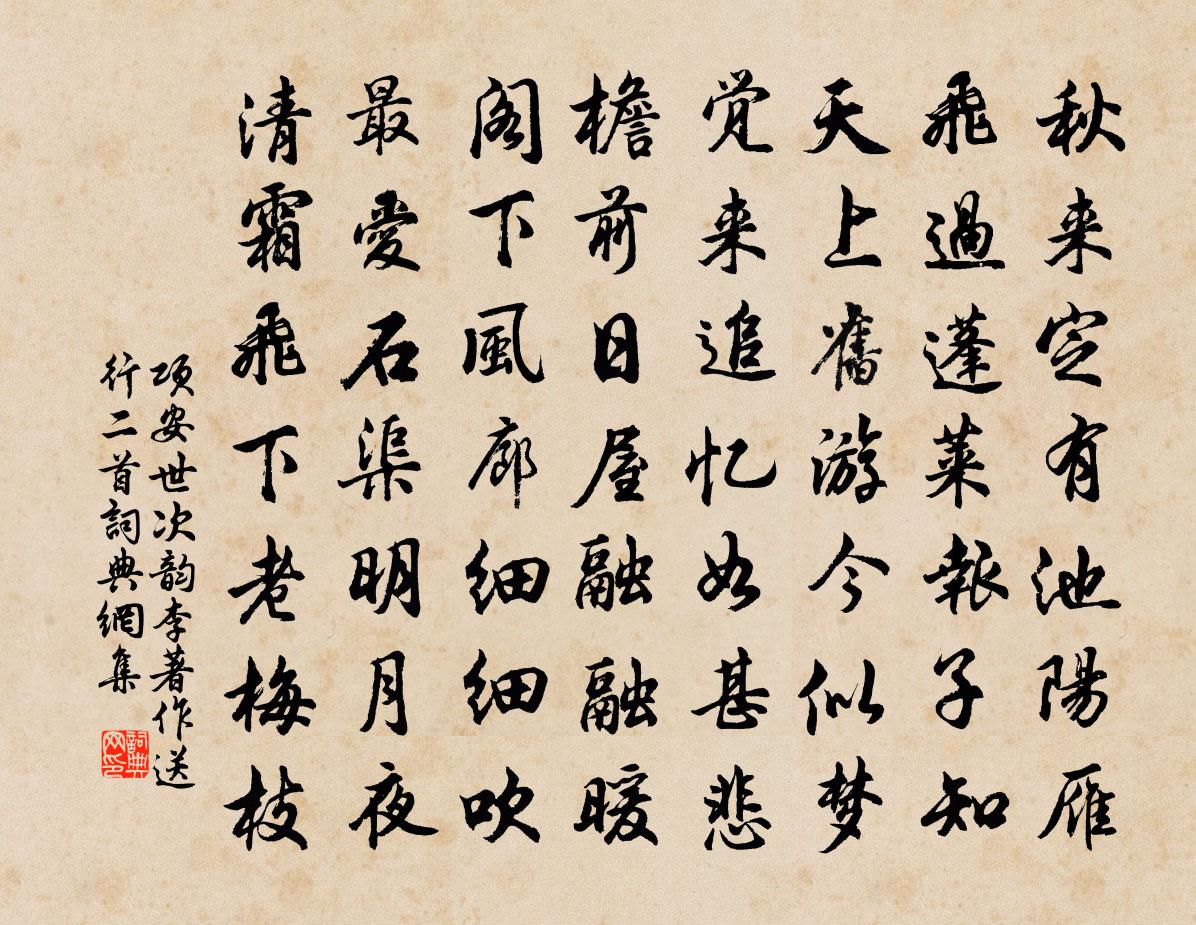 秋来定有池陽雁
飛過蓬萊報子知
天上舊游今似梦
觉来追忆如甚悲
檐前日屋融融暖
阁下風廊细细吹
最愛石渠明月夜
清霜飛下老梅枝
项安世次韵李著作送
行二首詞典網集
詞典
网印